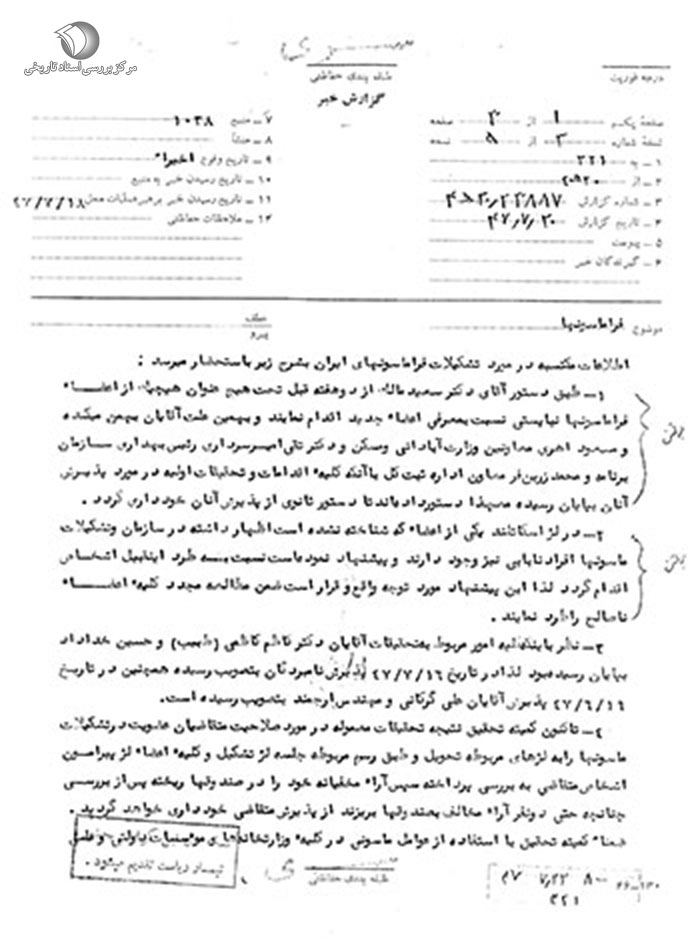 مرکز بررسی اسناد تاریخی
سری
طبقه بندی حفاظتی
گزارش خبر
درجه فوریت
صفحه یکم ۱ از ۳ صفحه
نسخه شماره ۲ از ۵ نسخه
۱ – به ۳۲۱
۲ – از ۲۰ھ۲۰
۳ – شماره گزارش
۴ – تاریخ گزارش ۴۷٫۷٫۲۰
۵ – پیوست
۶ – گیرندگان خبر
۷ – منبع ۱۰۳۸
۸ – منشأ
۹ – تاریخ وقوع اخیرا"
۱۰ – تاریخ رسیدن خبر به منبع
۱۱ – تاریخ رسیدن خبر برهبر عملیات محل ۴۷/۷/۱۸
۱۲ – ملاحظات حفاظتی
موضوع فراماسونها
عطف
پیرو
اطلاعات مکتسبه در مورد تشکیلات فراماسونهای ایران بشرح زیر باستحضار میرسد :
۱– طبق دستور آقای دکتر سعید مالک از دوهفته قبل تحت هیچ عنوان هیچیک از اعضاء
فراماسونها نبایستی نسبت بمعرفی اعضاء جدید اقدام نمایند و بهمین علت آقایان بهمن میکده
و مسعود اهری معاونین وزارت آبادانی ومسکن و دکتر تقی امیرسرداری رئیس بهداری سازمان
برنامه و محمد زرین فر معاون اداره ثبت کل با آنکه کلیه اقدامات و تحقیقات اولیه در مورد پذیرش
آنان بپایان رسیده معهذا دستور داده اند تا دستور ثانوی از پذیرش آنان خودداری گردد .
۲– در لژ اسکاتلند یکی از اعضاء که شناخته نشده است اظهار داشته در سازمان وتشکیلات
ماسونها افراد نابابی نیز وجود دارند و پیشنهاد نموده است نسبت به طرد اینقبیل اشخاص
اقدام گردد لذا این پیشنهاد مورد توجه واقع و قرار است ضمن مطالعه مجدد کلیه اعضاء
ناصالح را طرد نمایند .
۳– نظر باینکه کلیه امور مربوط به تحقیقات آقایان دکتر کاظم کاظمی (طبیب) و حسین خداداد
بپایان رسیده بود لذا در تاریخ ۴۷/۷/۱۶ پذیرش نامبردگان بتصویب رسیده همچنین در تاریخ
۴۷/۶/۱۶ پذیرش آقایان علی گرگانی و مهندس ارجمند بتصویب رسیده است.
۴– تاکنون کمیته تحقیق نتیجه تحقیقات معموله در مورد صلاحیت متقاضیان عضویت در تشکیلات
ماسونها را به لژهای مربوطه تحویل و طبق رسم مربوطه جلسه لژ تشکیل و کلیه اعضاء لژ پیرامون
اشخاص متقاضی به بررسی پرداخته سپس آراء مخفیانه خود را در صندوقها ریخته پس از بررسی
چنانچه حتی دونفر آراء مخالف بصندوقها بریزند از پذیرش متقاضی خودداری خواهد گردید .
ضمناً کمیته تحقیق با استفاده از عوامل ماسونی در کلیه وزارتخانه‌ها و موسسات دولتی و ملی
تیمسار ریاست تقدیم میشود .
سری
طبقه بندی حفاظتی
۱۳۰–۶۶
۸ ۷٫۲۲ ۴۷
۳۲۱